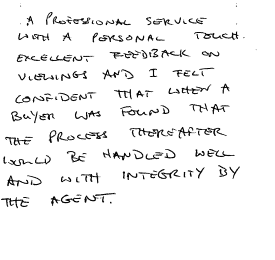 A PROFESSIONAL SERVICE
WITH A PERSONAL TOUCH.
EXCELLENT FEEDBACK ON
VIEWINGS AND I FELT
CONFIDENT THAT WHEN A
BUYER WAS FOUND THAT
THE PROCESS THEREAFTER
WOULD BE HANDLED WELL
AND WITH INTEGRITY BY
THE AGENT.